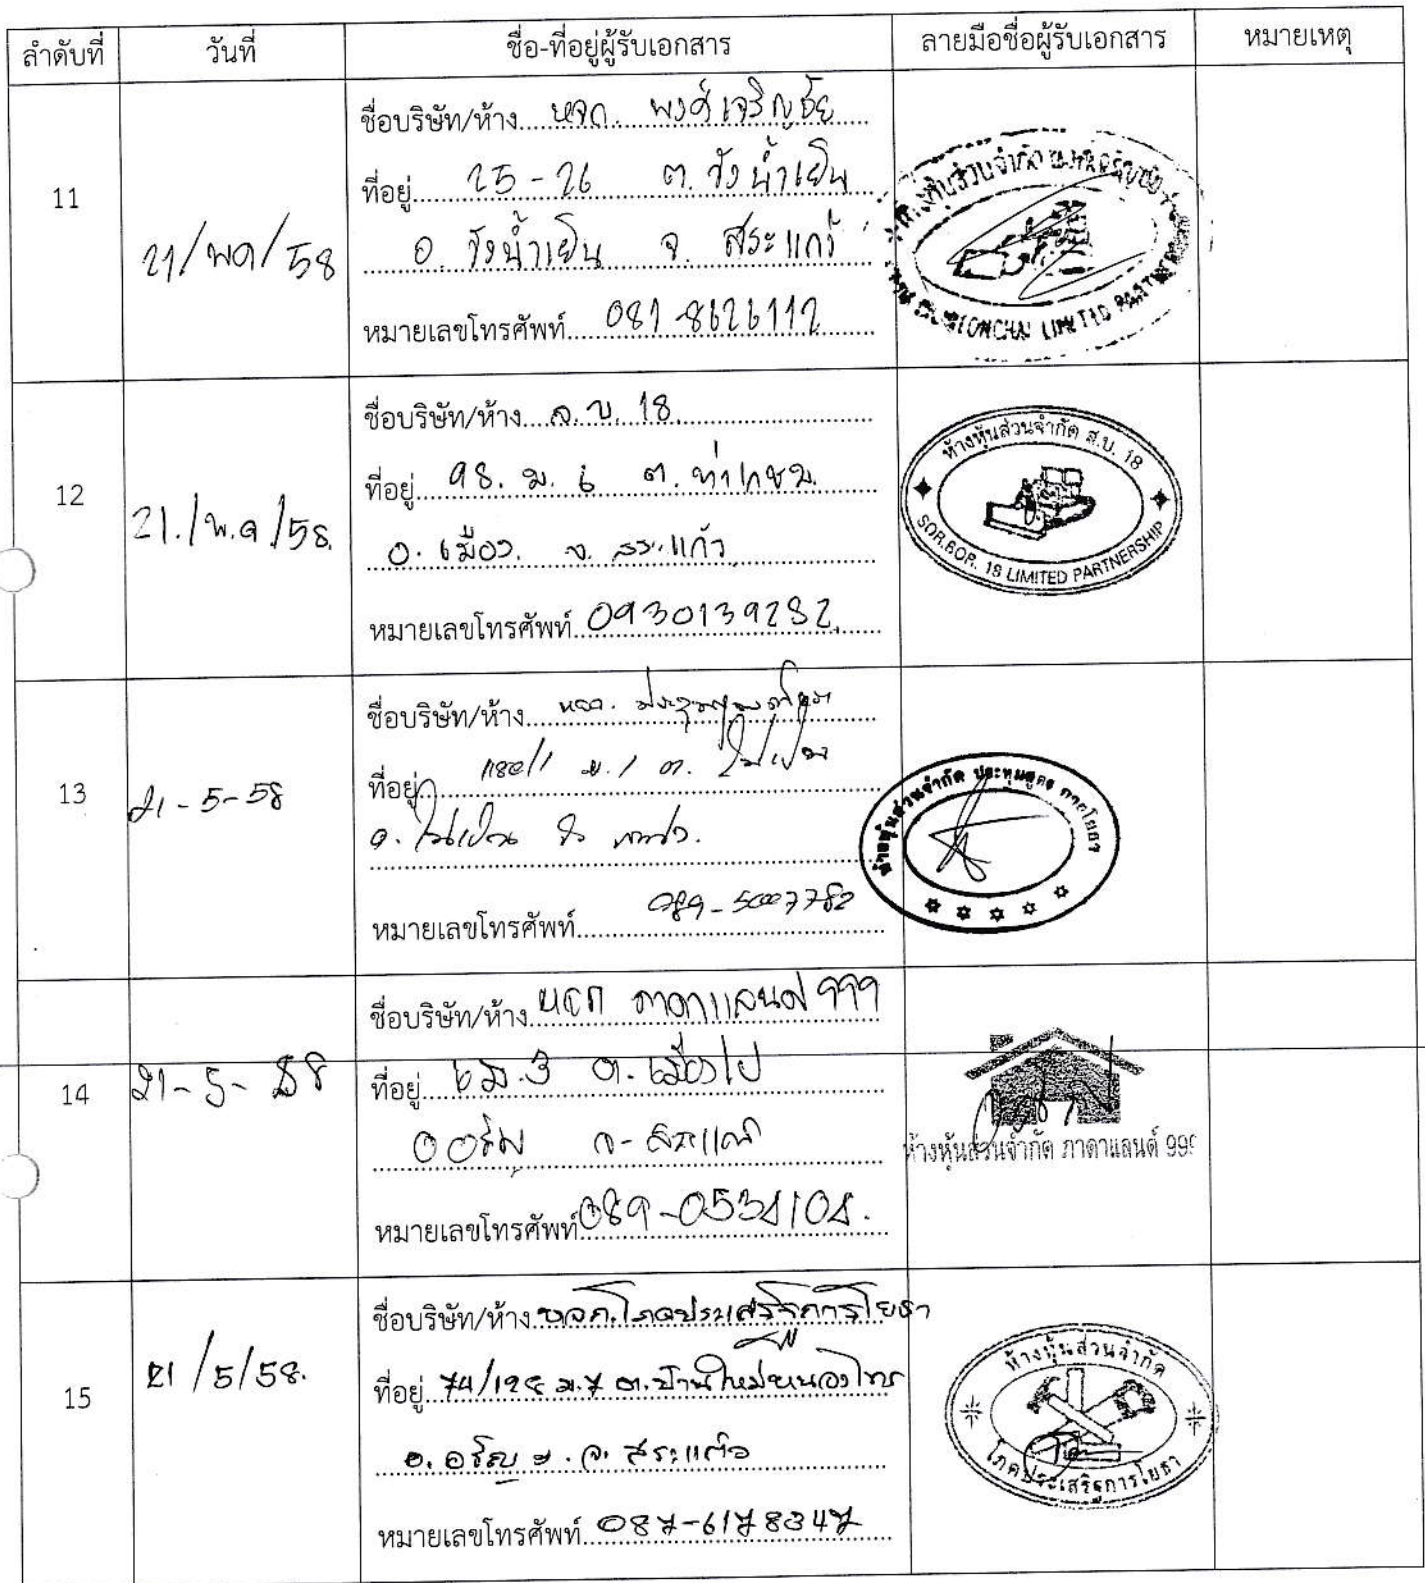 ลำดับที่ วันที่ ชื่อ-ที่อยู่ผู้รับเอกสาร ลายมือชื่อผู้รับเอกสาร หมายเหตุ
11
21/พค/58
ชื่อบริษัท/ห้าง หจก. พงศ์เจริญชัย
ที่อยู่ 25-26 ต. วังน้ำเย็น
อ. วังน้ำเย็น จ. สระแก้ว
หมายเลขโทรศัพท์ 081-8626112
LIMITED
12
21./พ.ค/58.
ชื่อบริษัท/ห้าง ส.บ. 18
ที่อยู่ 98. ม. 6 ต. ท่าเกษม
อ. เมือง. จ. สระแก้ว
หมายเลขโทรศัพท์ 0930139282
ห้างหุ้นส่วนจำกัด ส.บ. 18
SOR.BOR. 18 LIMITED PARTNERSHIP
13
21-5-58
ชื่อบริษัท/ห้าง หจก.
ที่อยู่ ม.1 ต.
หมายเลขโทรศัพท์ 089-5007782
ห้างหุ้นส่วนจำกัด การโยธา
14
21-5-58
ชื่อบริษัท/ห้าง หจก ภาดาแลนด์ 999
ที่อยู่ ม.3 ต.เมืองไผ่
อ อรัญ จ-สระแก้ว
หมายเลขโทรศัพท์ 089-0534104.
ห้างหุ้นส่วนจำกัด ภาดาแลนด์ 999
15
21/5/58.
ชื่อบริษัท/ห้าง หจก.โภคประเสริฐการโยธา
ที่อยู่ 74/128 ม.7 ต.บ้านใหม่หนองไทร
อ. อรัญฯ. จ. สระแก้ว
หมายเลขโทรศัพท์ 087-6178347
ห้างหุ้นส่วนจำกัด
โภคประเสริฐการโยธา